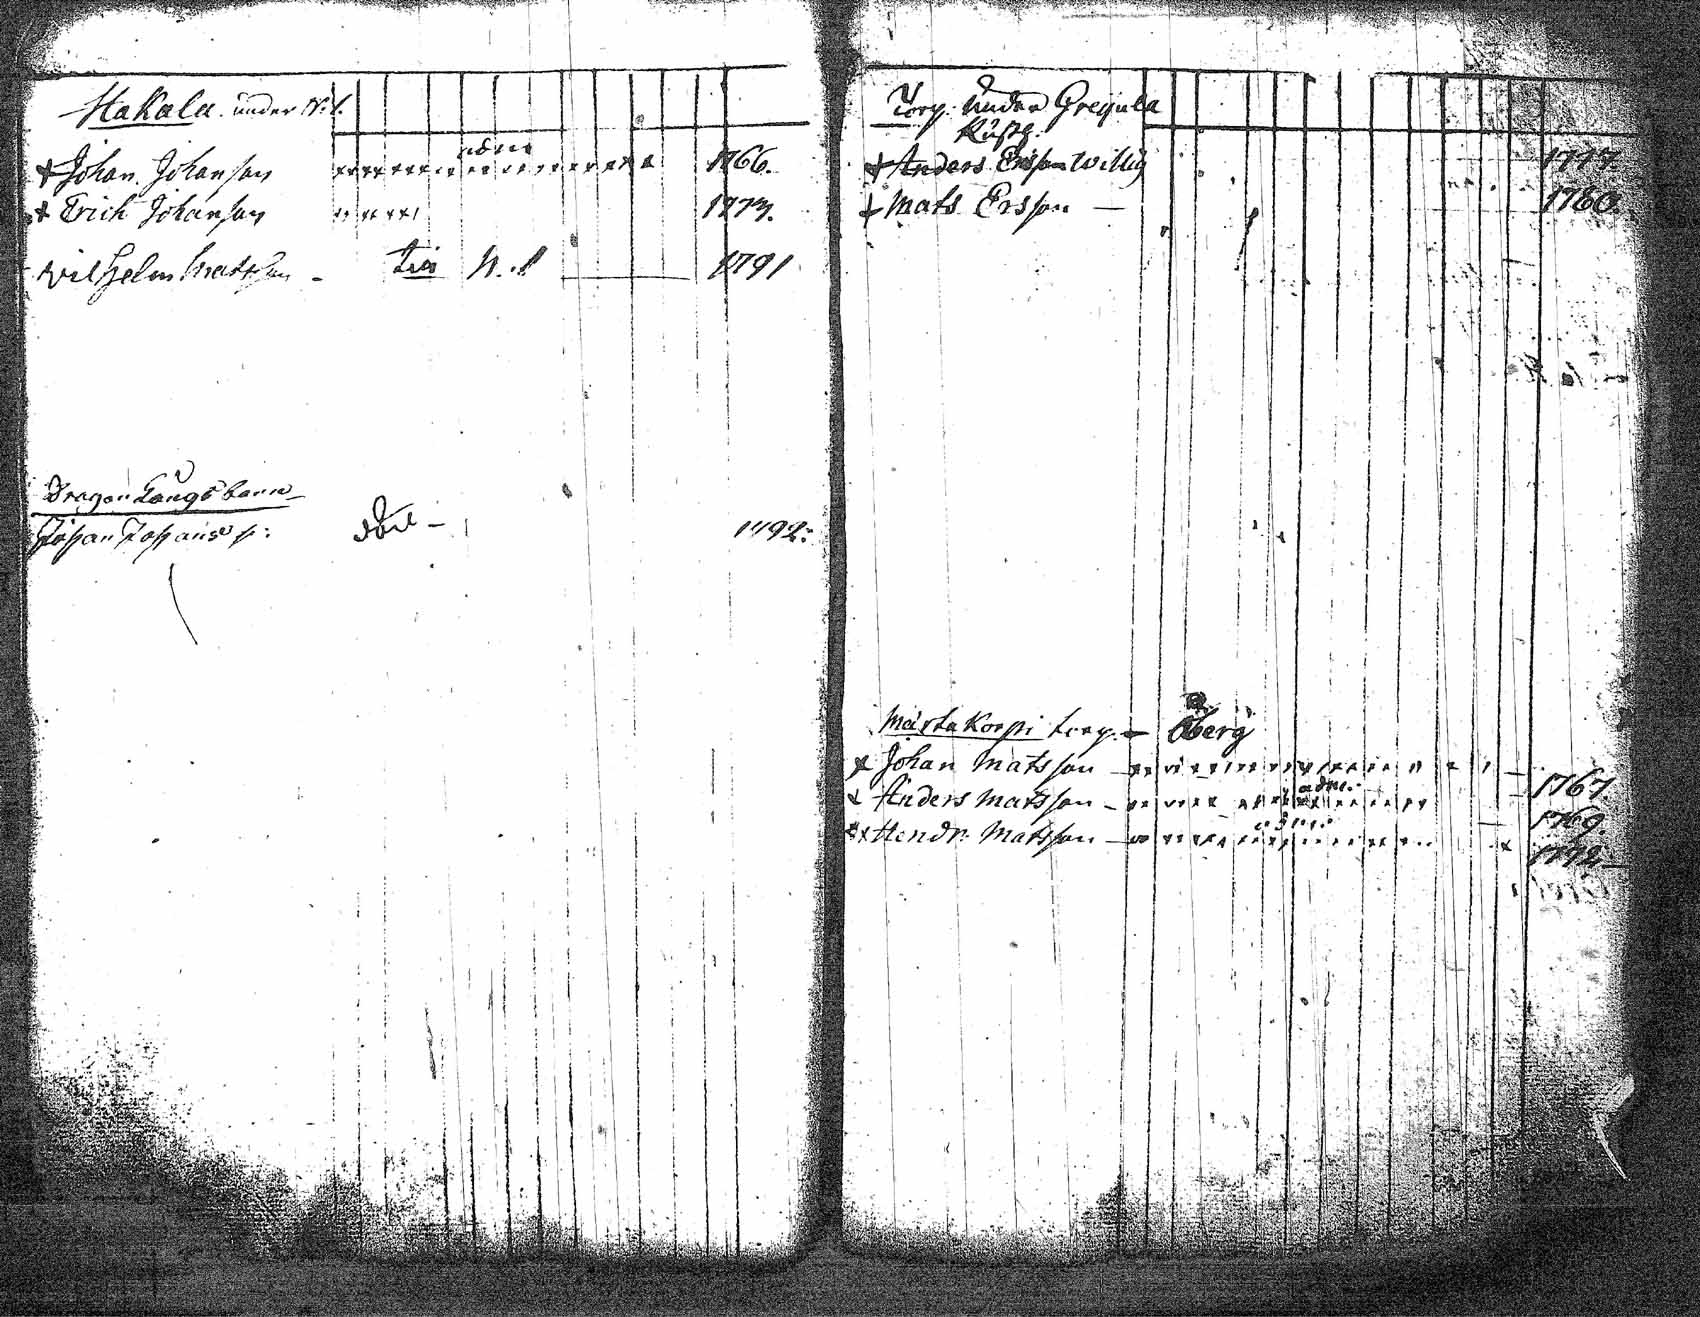 Hakala under N:1.
adm
Johan Johansson 1766.
Erich Johansson 1773.
Wilhelm Matsson - N.1 1791
Dragon Långs barn
Johan Johanss s: 1792:
Torp. under Gregula
Rusth.
Anders Ersson Willig 1777.
Mats Ersson — 1780.
Märta Korpi torp. — Öberg
Johan Matsson — 1767.
adm:
Anders Matsson — 1769.
adm:
Hendr: Matsson — 1772